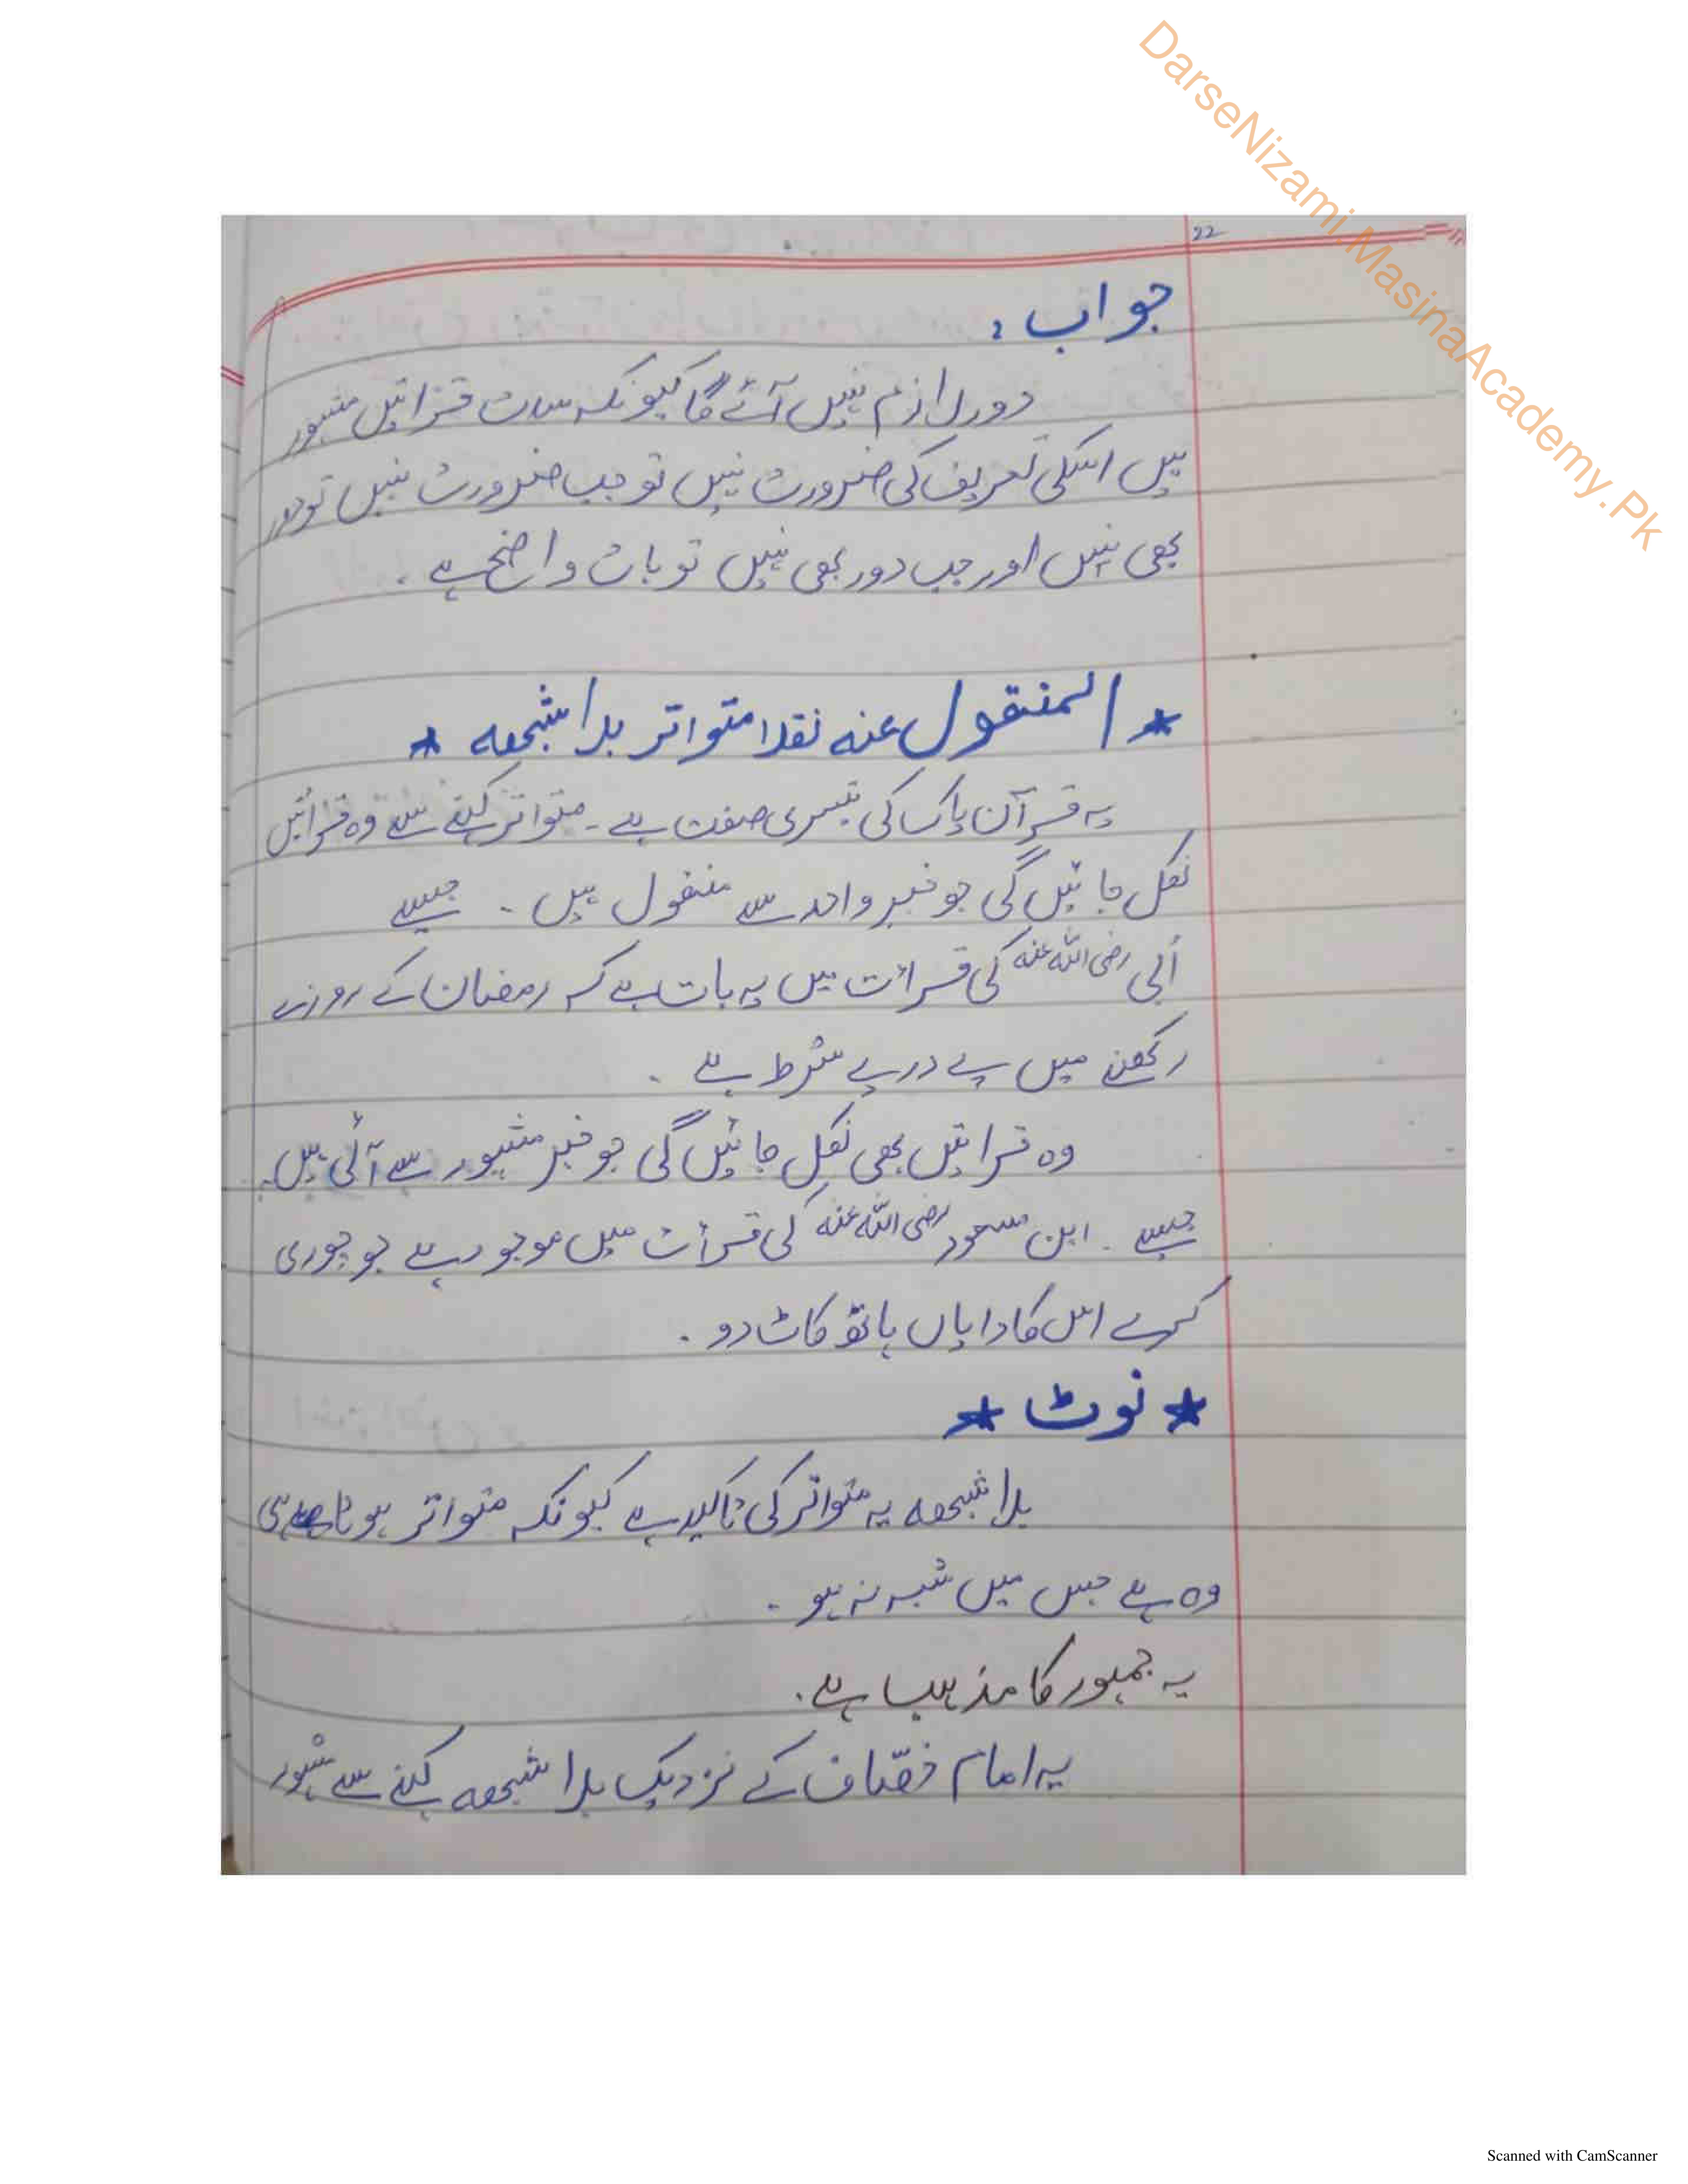 DarseNizami.MasinaAcademy.Pk
22
جواب :
دور لازم نہیں آئے گا کیونکہ سات قراتیں مشہور
ہیں اسکی تعریف کی ضرورت نہیں تو جب ضرورت نہیں تو دور
بھی نہیں اور جب دور بھی نہیں تو بات واضح ہے ۔
* المنقول عنہ نقلا متواتر بلا شبھہ *
یہ قرآن پاک کی تیسری صفت ہے ۔ متواتر کہنے سے وہ قرائتیں
نکل جائیں گی جو خبر واحد سے منقول ہیں ۔ جیسے
اُبی رضی اللہ عنہ کی قرائت میں یہ بات ہے کہ رمضان کے روزے
رکھنے میں پے در پے شرط ہے ۔
وہ قراتیں بھی نکل جائیں گی جو خبر مشہور سے آئی ہیں ۔
جیسے ۔ ابن مسعود رضی اللہ عنہ کی قرأت میں موجود ہے جو چوری
کرے اس کا دایاں ہاتھ کاٹ دو ۔
* نوٹ *
بلا شبھہ یہ متواتر کی تاکید ہے کیونکہ متواتر ہوتا ہی
وہ ہے جس میں شبہ نہ ہو ۔
یہ جمہور کا مذہب ہے ۔
یہ امام خصّاف کے نزدیک بلا شبھہ کہنے سے مشہور
Scanned with CamScanner